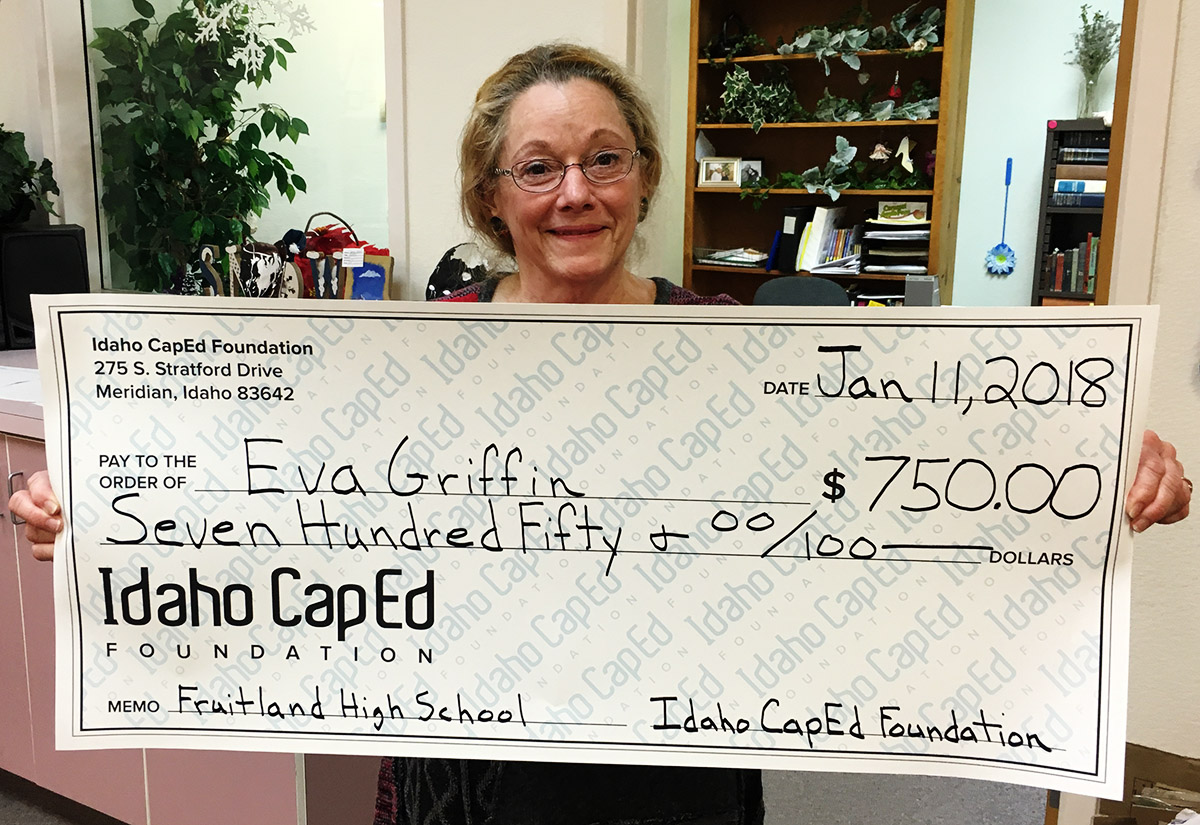 Idaho CapEd Foundation
275 S. Stratford Drive
Meridian, Idaho 83642
DATE Jan 11, 2018
PAY TO THE
ORDER OF Eva Griffin $ 750.00
Seven Hundred Fifty & 00/100 DOLLARS
Idaho CapEd
FOUNDATION
MEMO Fruitland High School Idaho CapEd Foundation